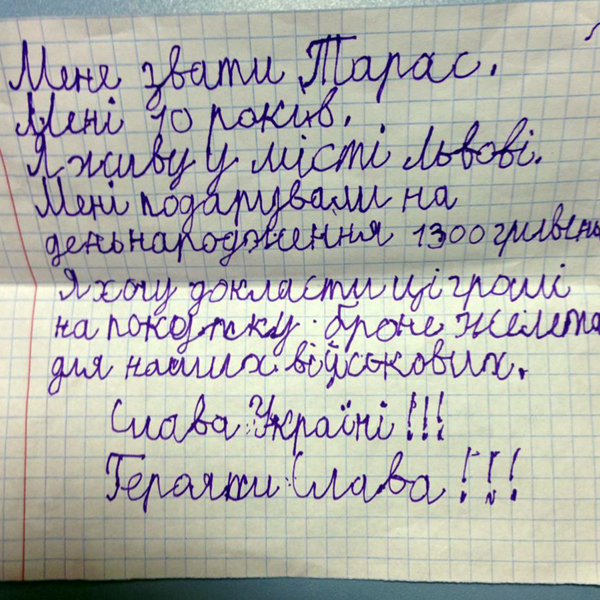 Мене звати Тарас.
Мені 10 років.
Я живу у місті Львові.
Мені подарували на
деньнародження 1300 гривень
Я хочу докласти ці гроші
на покупку броне жилета
для наших військових.
Слава Україні!!!
Героям Слава!!!